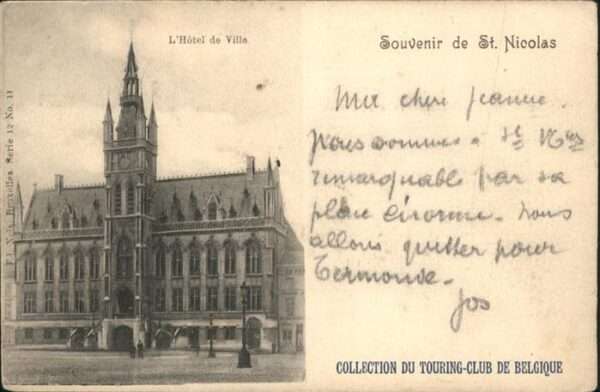 L'Hôtel de Ville
Souvenir de St. Nicolas
Ma chère Jeanne.
Nous sommes à St Nicolas
remarquable par sa
place énorme. Nous
allons quitter pour
Termonde.
Jos
COLLECTION DU TOURING-CLUB DE BELGIQUE
Bruxelles, Serie 12 No. 11